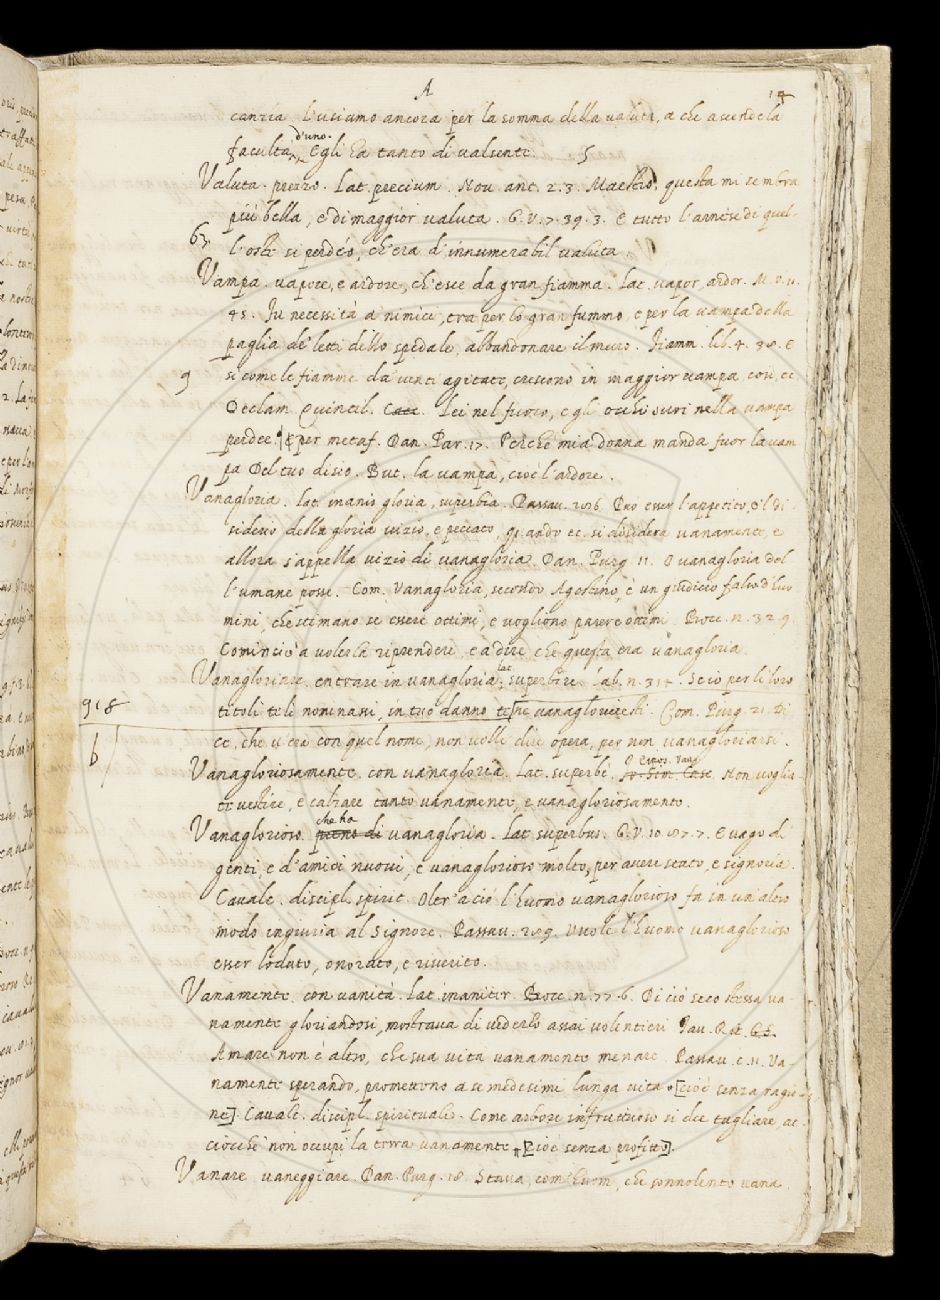 A
14
canzia l'usiamo ancora per la somma della valuta, a che ascende la
d'uno
facultà, Egli ha tanto di valsente.
Valuta. prezzo. Lat. precium. Nov. ant. 2. 3. Maestro, questa mi sembra
più bella, e di maggior valuta. G. V. 7. 39. 3. E tutto l'arnese di quel-
l'oste si perdéo, ch'era d'innumerabil valuta.
Vampa. vapore, e ardore, ch'esce da gran fiamma. Lat. vapor, ardor. M.
45. In necessità a nimici, era per lo gran fummo, e per la vampa della
paglia de' letti dello spedale, abbandonare il muro. Fiamm. lib. 4. 38. E
9
sì come le fiamme da' venti agitate, crescono in maggior vampa, così ec
Declam. Quintil. Lei nel fuoco, e gli occhi suoi nella vampa
perdee. E per metaf. Dan. Par. 17. Perchè mia donna manda fuor la vam
pa Del tuo disio. But. la vampa, cioè l'ardore.
Vanagloria. Lat. inanis gloria, superbia. Passav. Può esser l'appetito, e 'l di
siderio della gloria vizio, e peccato, quando ec. si disidera vanamente, e
allora s'appella vizio di vanagloria. Dan. Purg. 11. O vanagloria del
l'umane posse. Com. Vanagloria, secondo Agostino, è un giudicio falso d'huo
mini, che stimano se essere ottimi, e vogliono parere ottimi. Bocc. n. 32. 9.
Cominciò a volerla riprendere, e a dire, che questa era vanagloria.
Vanagloriare. entrare in vanagloria, lat. superbire. Lab. n. 314. Se io per li loro
918
titoli te li nominassi, in tuo danno te ne vanaglorieresti. Com. Purg. 21. Di
b
ce, che v'era con quel nome, non volle dire opera, per non vanagloriarsi.
Vanagloriosamente. con vanagloria. Lat. superbè. Non voglia
te vestire, e calzare tanto vanamente, e vanagloriosamente.
che ha
Vanaglorioso. pieno di vanagloria. Lat. superbus. G. V. 10. 7. E vago di
genti, e d'amici nuovi, e vanaglorioso molto, per avere stato, e signoria.
Cavalc. discipl. spirit. Oltr'a ciò l'huomo vanaglorioso fa in un altro
modo ingiuria al Signore. Passav. Vuole l'huomo vanaglorioso
esser lodato, onorato, e riverito.
Vanamente. con vanità. Lat. inaniter. Bocc. n. 77. 6. Di ciò seco stessa va-
namente gloriandosi, mostrava di vederlo assai volentieri. Tav. Rit.
Amare non è altro, che sua vita vanamente menare. Passav. c. 11. Va-
namente sperando, promettono a se medesimi lunga vita [cioè senza ragio-
ne]. Cavalc. discipl. spirituali. Come arbore infruttuoso si dee tagliare, ac-
ciocchè non occupi la terra vanamente [cioè senza profitto].
Vanare. vaneggiare. Dan. Purg. 18. Stava, com'huom, che sonnolento vana.